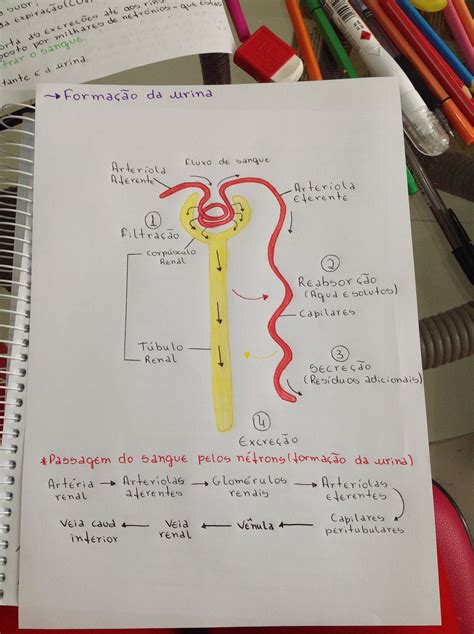 suor;
a expiração (CO
orta as excreções até aos rins
posto por milhares de nefrónios - que estão
trar o sangue.
tante é a urina.
→ Formação da urina
Fluxo de sangue
Arteríola
Aferente
Arteríola
Eferente
1
Filtração
Corpúsculo
Renal
2
Reabsorção
(Água e solutos)
Capilares
Túbulo
Renal
3
Secreção
(Resíduos adicionais)
4
Excreção
*Passagem do sangue pelos néfrons (formação da urina)
Artéria → Arteríolas → Glomérulos → Arteríolas
renal aferentes renais eferentes
Veia cava ← Veia ← Vênula ← Capilares
inferior renal peritubulares